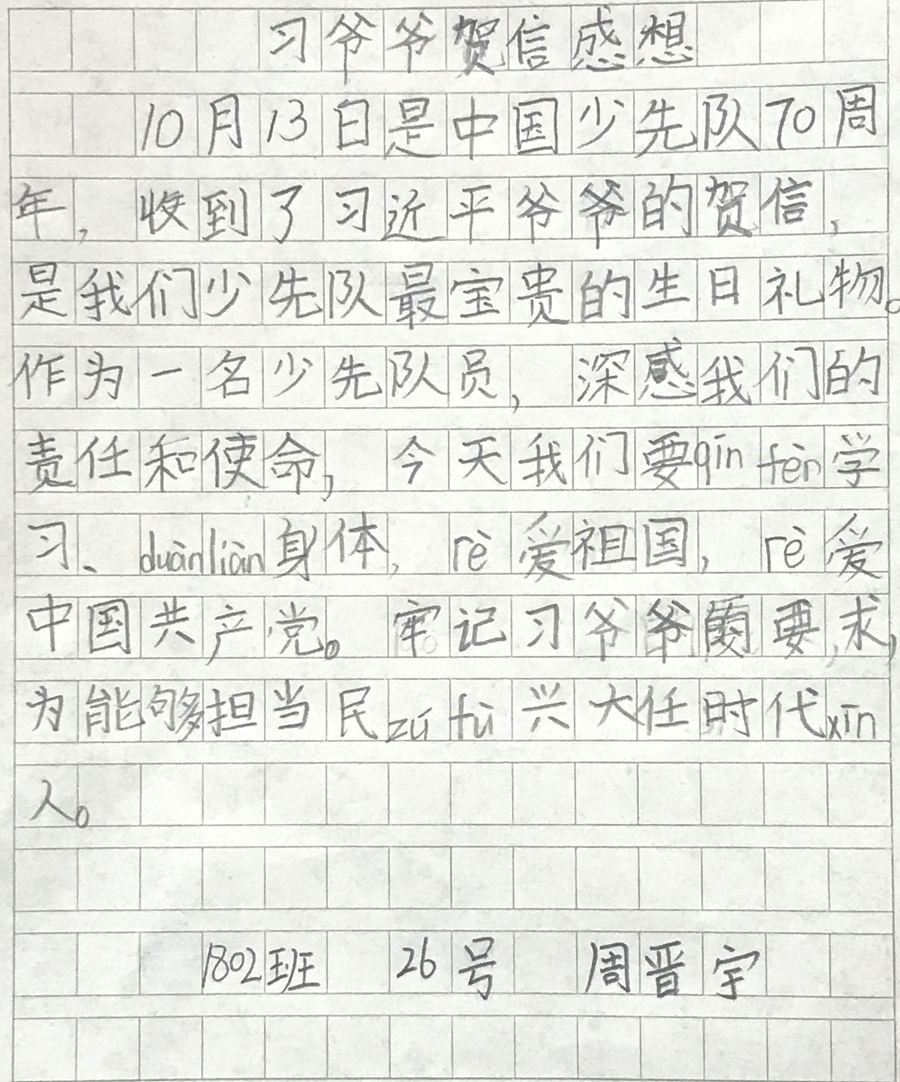 习爷爷贺信感想
10月13日是中国少先队70周
年，收到了习近平爷爷的贺信，
是我们少先队最宝贵的生日礼物。
作为一名少先队员，深感我们的
责任和使命，今天我们要qīn fèn学
习、duànliàn身体，rè爱祖国，rè爱
中国共产党。牢记习爷爷的要求，
为能够担当民zú fù兴大任时代xīn
人。
1802班 26号 周晋宇